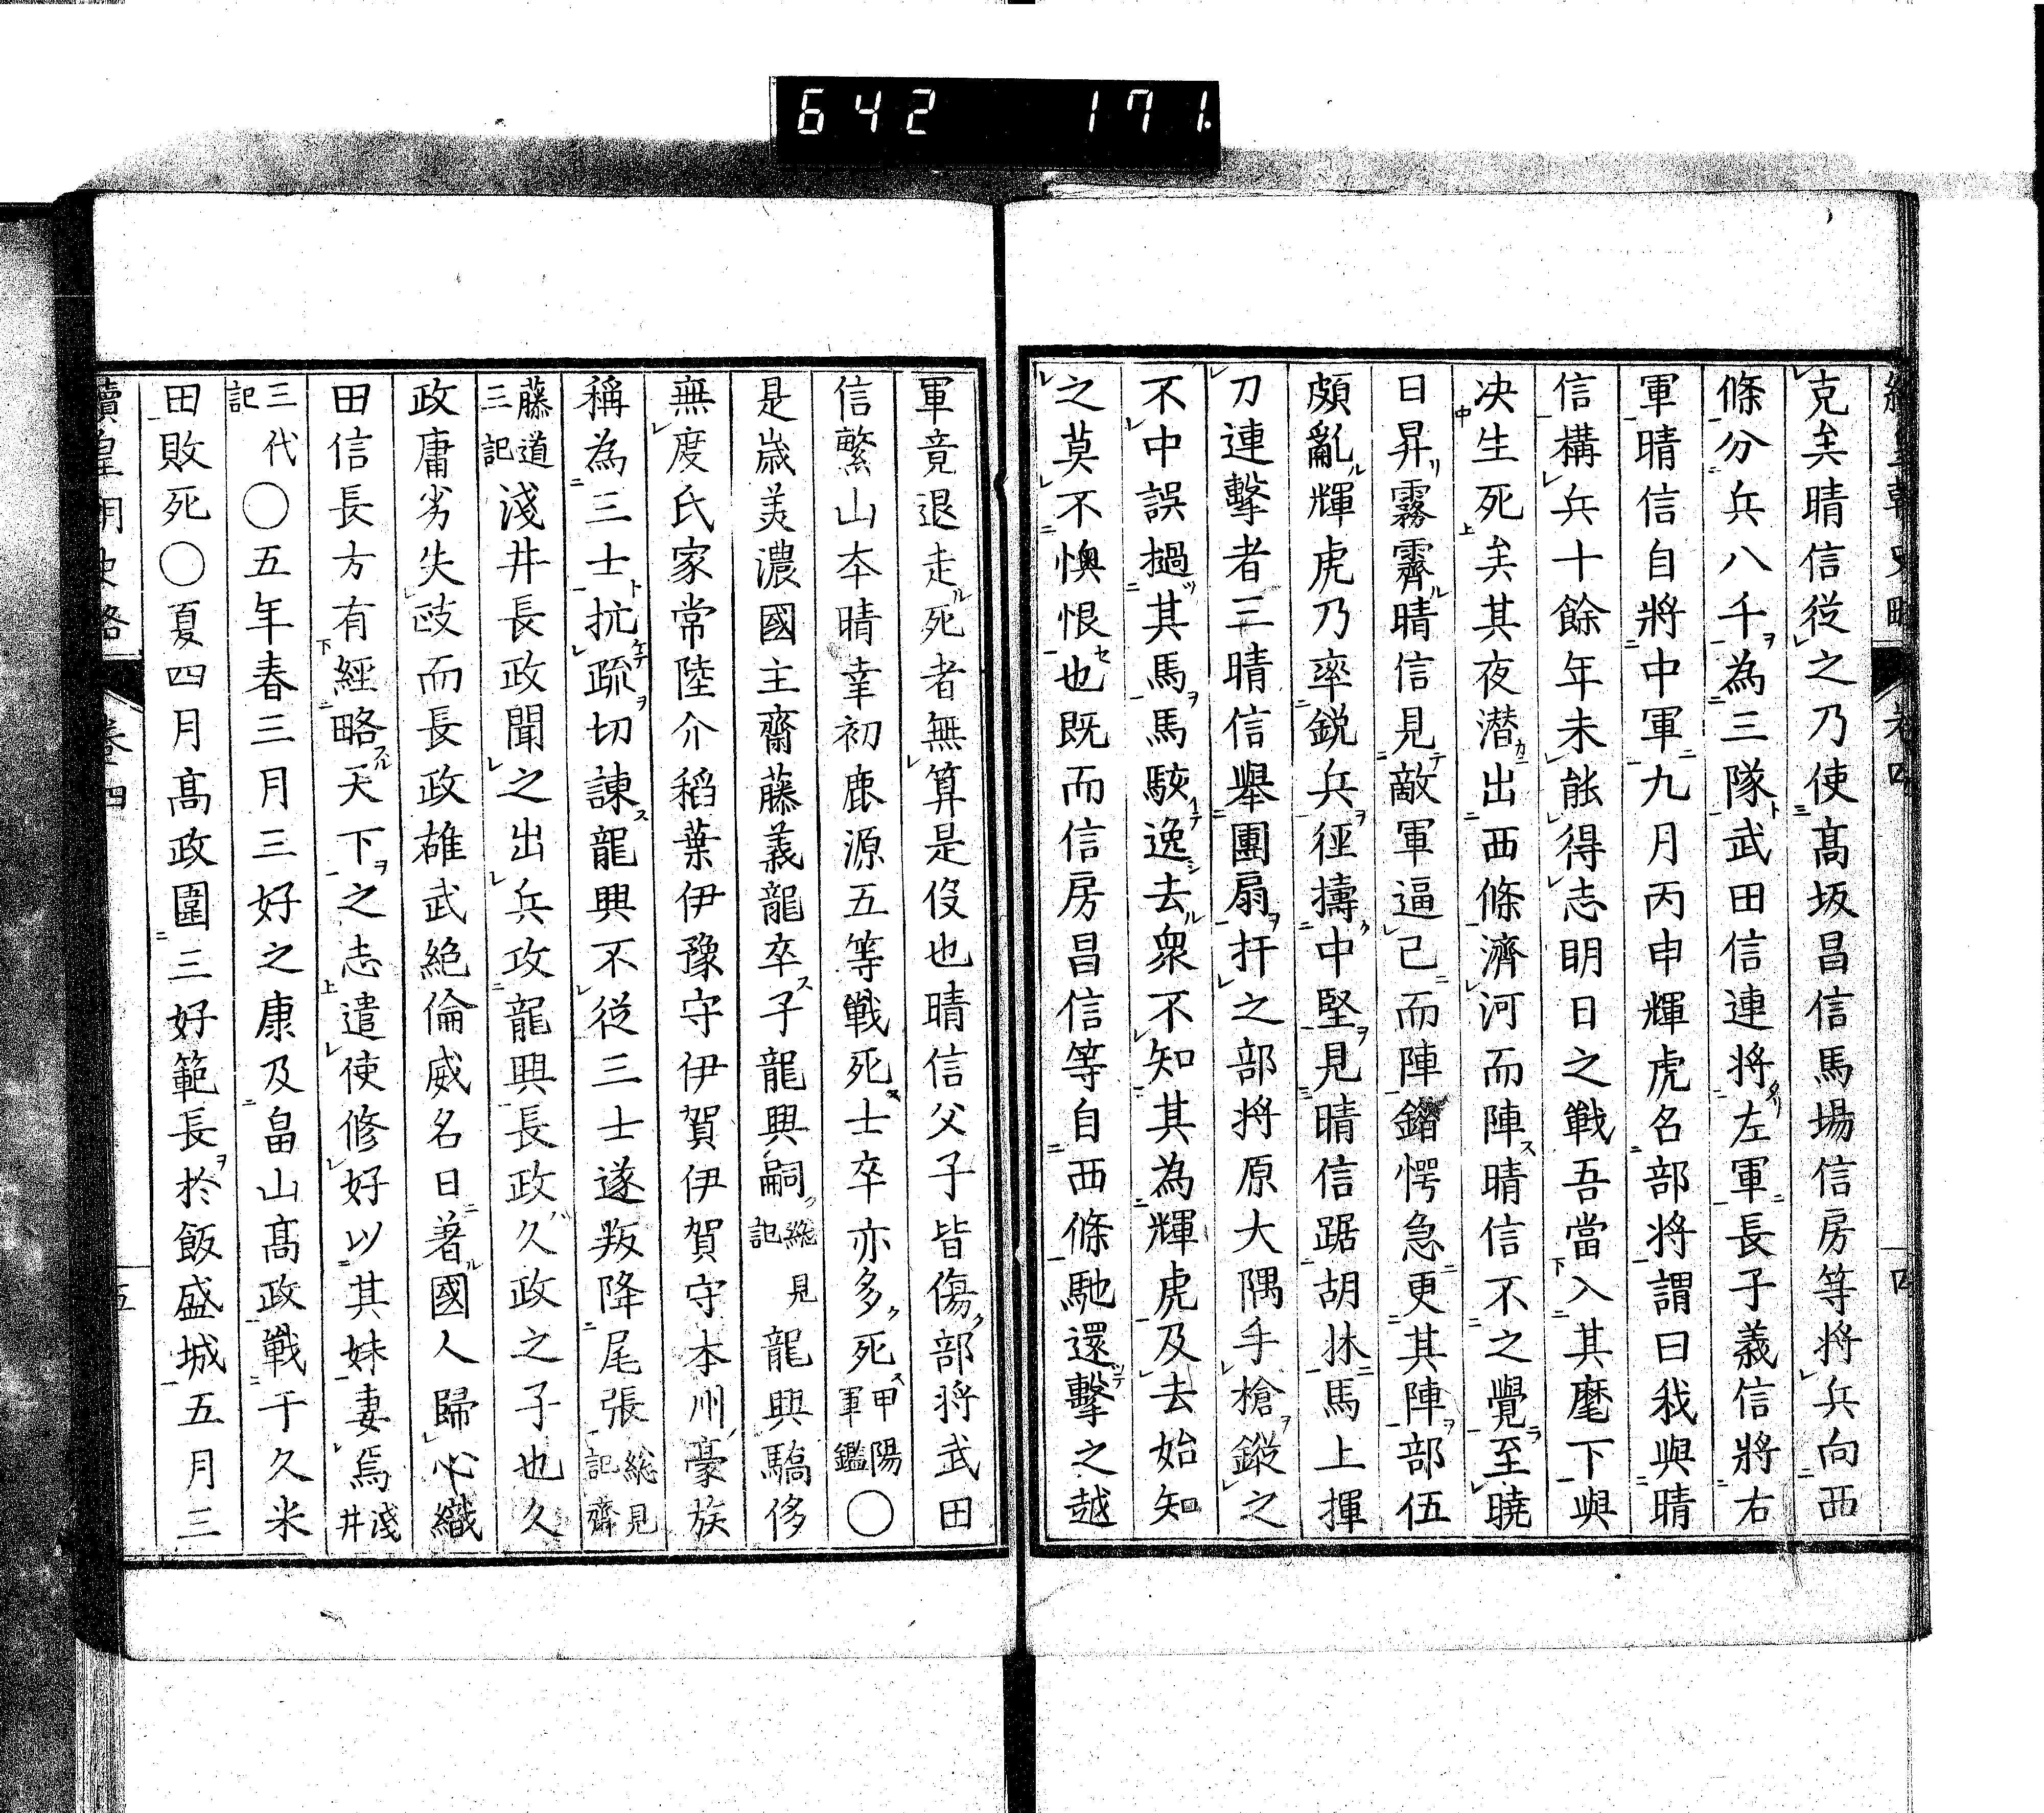 642 171.
克矣晴信從之乃使髙坂昌信馬場信房等將兵向西
條分兵八千為三隊武田信連將左軍長子義信將右
軍晴信自將中軍九月丙申輝虎名部将謂曰我與晴
信構兵十餘年未能得志明日之戦吾當入其麾下與
决生死矣其夜潜出西條濟河而陣晴信不之覺至曉
日昇霧霽晴信見敵軍逼己而陣錯愕急更其陣部伍
頗亂輝虎乃率鋭兵徑擣中堅見晴信踞胡牀馬上揮
刀連擊者三晴信舉團扇扞之部将原大隅手槍鏦之
不中誤撾其馬馬駭逸去衆不知其為輝虎及去始知
之莫不懊恨也既而信房昌信等自西條馳還擊之越
軍竟退走死者無算是役也晴信父子皆傷部将武田
信繁山本晴幸初鹿源五等戦死士卒亦多死甲陽軍鑑〇
是歳美濃國主齋藤義龍卒子龍興嗣總見記龍興驕侈
無度氏家常陸介稻葉伊豫守伊賀伊賀守本州豪族
稱為三士抗疏切諫龍興不從三士遂叛降尾張總見記齋
藤道三記淺井長政聞之出兵攻龍興長政久政之子也久
政庸劣失政而長政雄武絶倫威名日著國人歸心織
田信長方有經略天下之志遣使修好以其妹妻焉淺井
三代記〇五年春三月三好之康及畠山髙政戦于久米
田敗死〇夏四月髙政圍三好範長於飯盛城五月三
續皇朝史略 卷四 五